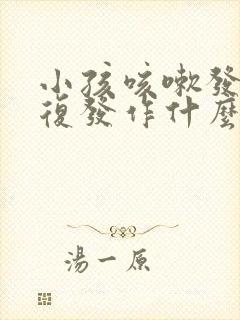 小孩咳嗽發
復發作什麼
湯一原